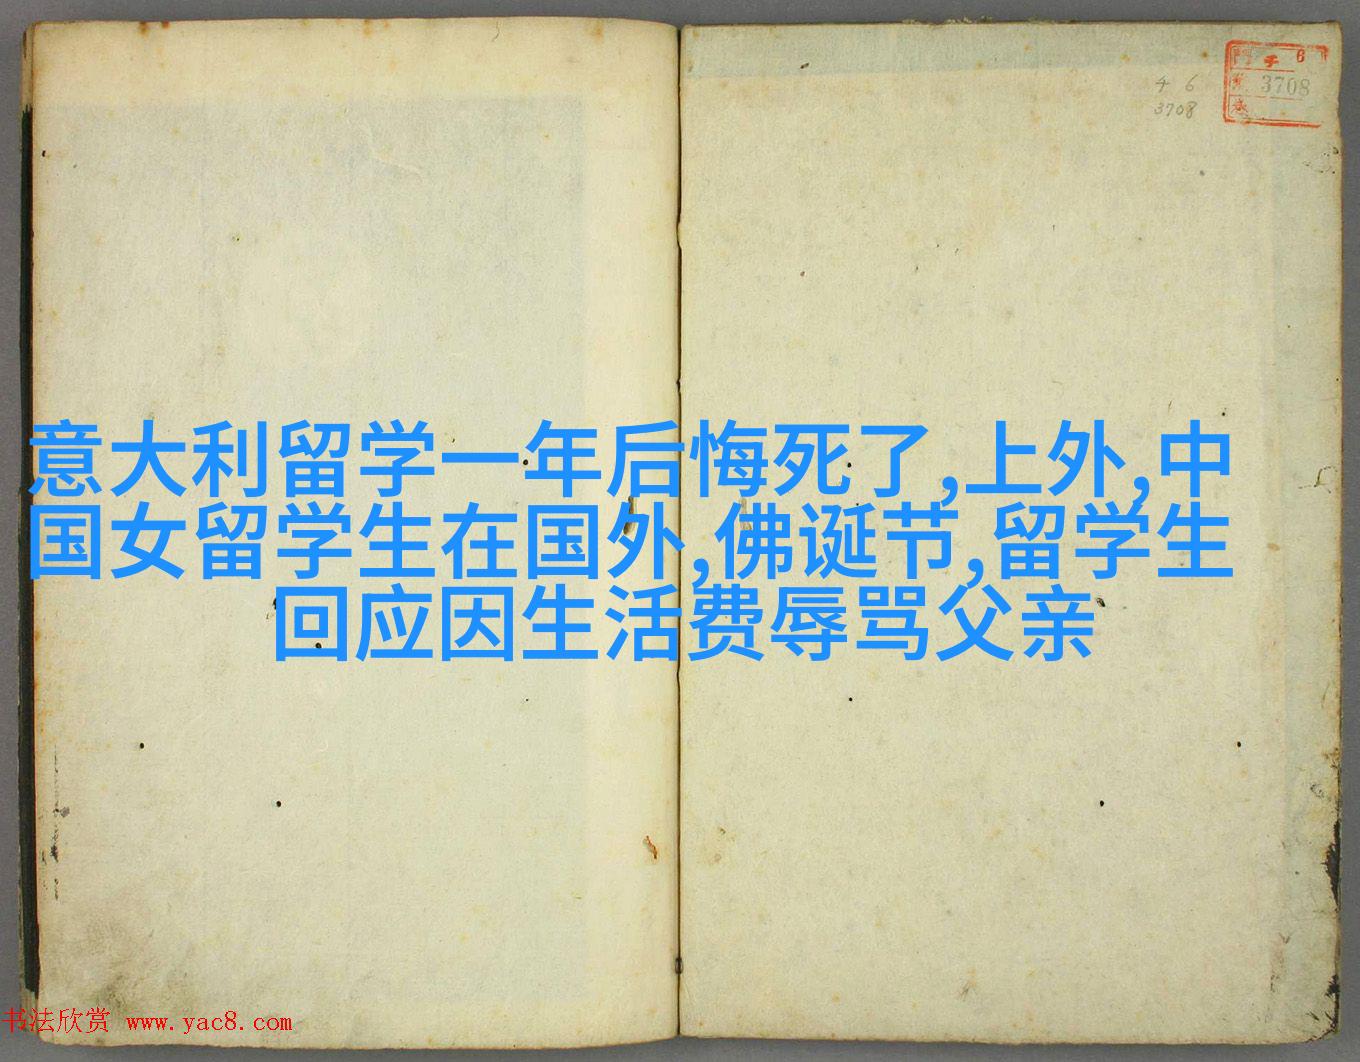 4 6
3708
6
3708
意大利留学一年后悔死了,上外,中
国女留学生在国外,佛诞节,留学生
回应因生活费辱骂父亲
书法欣赏 www.yac8.com